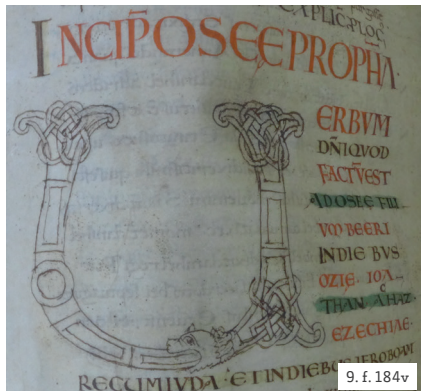 EXPLIC PLOG
INCIP̄ OSEE PROPHA·
U
ERBVM
DN̄I QUOD
FACTV̄ EST
AD OSEE FILI
VM BEERI
IN DIE BVS
OZIE· IOA
THAN· AHAZ·
EZECHIAE·
REGUM IVDA· ET IN DIEBUS IEROBOAM
9. f. 184v